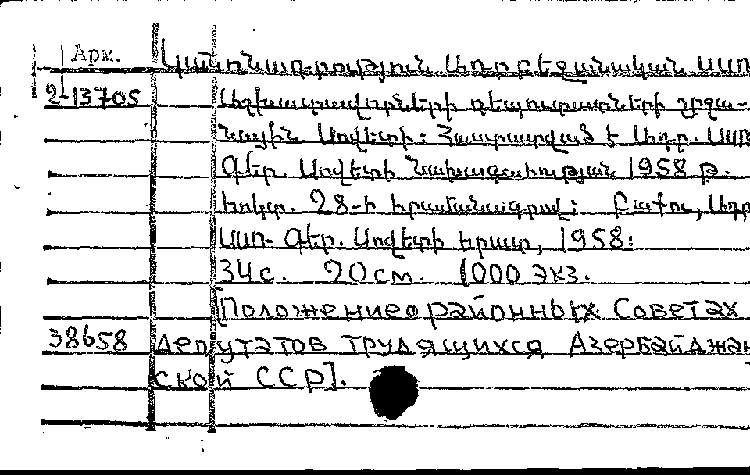 Арм. Կանոնադրություն Ադրբեջանական ՍՍՌ
2-13705 Աշխատավորների դեպուտատների շրջա-
նային Սովետի: Հաստատված է Ադր. ՍՍՌ
Գեր. Սովետի Նախագահության 1958 թ.
հոկտ. 28-ի հրամանագրով: Բաքու, Ադր
ՍՍՌ Գեր. Սովետի հրատ, 1958:
34 с. 20 см. 1000 экз.
[Положение о районных Советах
38658 депутатов трудящихся Азербайджан
ской ССР].